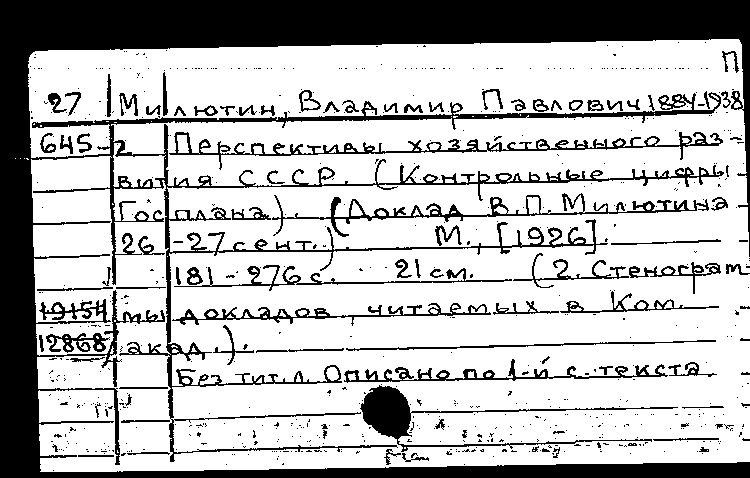 П
27 Милютин, Владимир Павлович, 1884-1938
645-2 Перспективы хозяйственного раз-
вития СССР. (Контрольные цифры
Госплана). (Доклад В.П. Милютина
26-27 сент.). М., [1926].
181-276 с. 21 см. (2. Стенограм-
19154 мы докладов, читаемых в Ком.
128687 акад.).
Без тит. л. Описано по 1-й с. текста